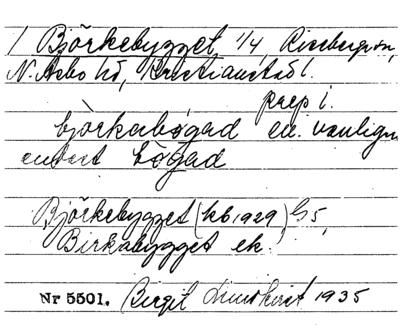 1 Björkebygget, 1/4, Riseberga sn,
N. Åsbo hd, Kristianstad l.
prep i.
björkabøgad en. vanligen
enbart bøgad
Björkebygget (kb 1929) G5,
Birkabygget ek.
Nr 5501. Birgit Lundkvist 1935